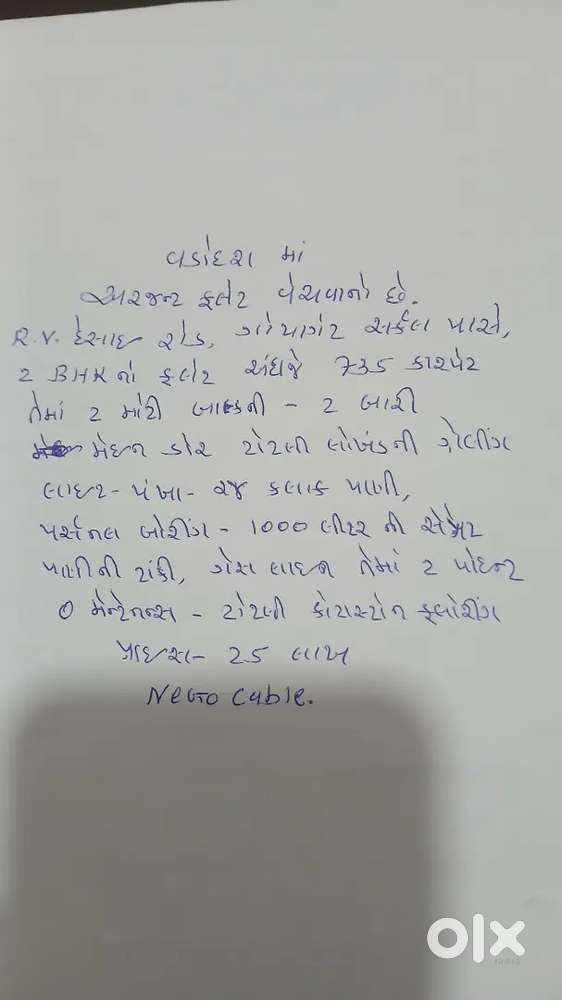 વડોદરા માં
અરજન્ટ ફ્લેટ વેચવાનો છે.
R.V. દેસાઇ રોડ, ગોયાગેટ સર્કલ પાસે,
2 BHK નો ફ્લેટ અંદાજે 735 કારપેટ
તેમાં 2 મોટી બાલ્કની - 2 બારી
મેઇન ડોર ટોટલી લોખંડની ગ્રીલીંગ
લાઇટ - પંખા - ૨૪ કલાક પાણી,
પર્સનલ બોરીંગ - 1000 લીટર ની સેપ્રેટ
પાણીની ટાંકી, ગેસ લાઇન તેમાં 2 પોઇન્ટ
0 મેન્ટેનન્સ - ટોટલી કોટાસ્ટોન ફ્લોરીંગ
પ્રાઇસ - 25 લાખ
Negocable.
OLX
INDIA